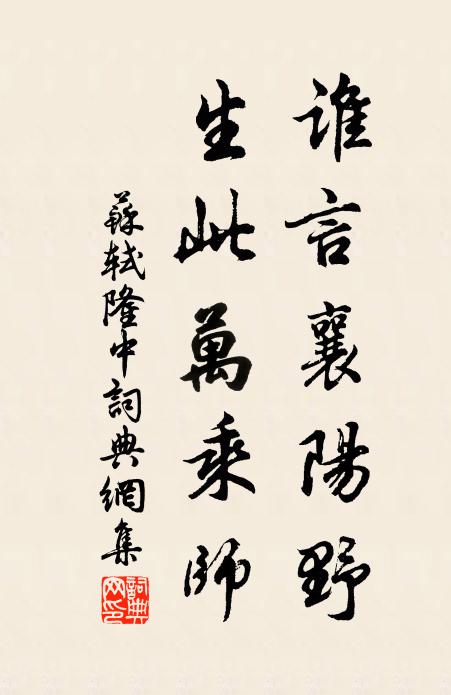 誰言襄陽野
生此萬乘師
蘇軾隆中詞典網集
詞典網印